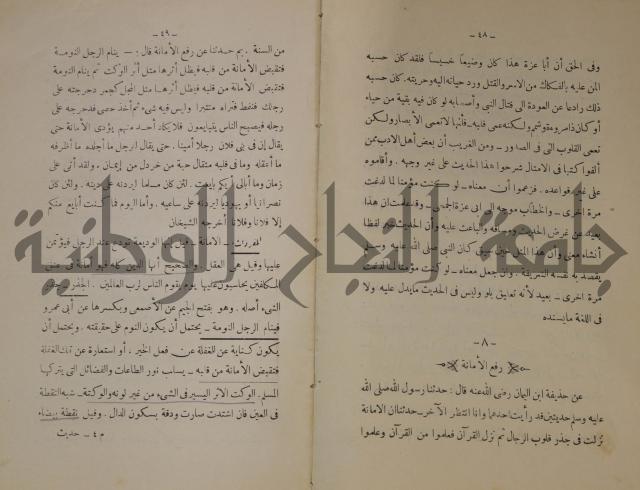 - ٤٨ -
وفى الحق أن أبا عزة هذا كان وضيعا خسيسا فلقد كان حسبه
المن عليه بالفكاك من الاسر والقتل ورد حياته اليه وحريته. كان حسبه
ذلك رادعا عن العودة الى قتال النبى وأصحابه لو كان فيه بقية من حياء
أو كان ذا مروءة ولكنه عمى قلبه ـ فأنها لا تعمى الأبصار ولكن
تعمى القلوب التى فى الصدور ـ ومن الغريب أن بعض أهل الادب ممن
ألفوا كتبا فى الامثال شرحوا هذا الحديث على غير وجهه . وأقاموه
على غير قواعده . فزعموا أن معناه ـ لو كنت مؤمنا لما لدغت
مرة اخرى ـ والخطاب موجه الى ابى عزة الجمحى ـ وقد علمت ان هذا
بعيد عن غرض الحديث ومساقه والباعث عليه وأن الحديث لفظا
أنشاء معنى وأن هذا المثل حين سيق كان النبى صلى الله عليه وسلم
يقصد به نفسه الشريفة ـ وأن جعل معناه ـ لو كنت مؤمنا لما لدغت
مرة اخرى ـ بعيد لأنه تعليق بلو وليس فى الحديث مايدل عليه ولا
فى اللغة مايسنده
- ٨ -
رفع الأمانة
عن حذيفة ابن اليمان رضى الله عنه قال : حدثنا رسول الله صلى الله
عليه وسلم حديثين قد رأيت احدهما وانا انتظر الآخر ـ حدثنا ان الامانة
نزلت فى جذر قلوب الرجال ثم نزل القرآن فعلموا من القرآن وعلموا
- ٤٩ -
من السنة . ثم حدثنا عن رفع الأمانة قال : ـ ينام الرجل النومة
فتقبض الأمانة من قلبه فيظل أثرها مثل أثر الوكت ثم ينام النومة
فتقبض الأمانة من قلبه فيظل أثرها مثل المجل كجمر دحرجته على
رجلك فنفط فتراه منتبرا وليس فيه شىء ثم أخذ حصى فدحرجه على
رجله فيصبح الناس يتبايعون فلا يكاد أحد منهم يؤدى الأمانة حتى
يقال إن فى بنى فلان رجلا أمينا . حتى يقال للرجل ما أجلده ما أظرفه
ما أعقله وما فى قلبه مثقال حبة من خردل من إيمان . ولقد أتى على
زمان وما أبالى أيكم بايعت . لئن كان مسلما ليردنه على دينه . ولئن كان
نصرانيا أو يهوديا ليردنه على ساعيه . وأما اليوم فما كنت أبايع منكم
إلا فلانا وفلانا أخرجه الشيخان
الأمانة ـ قيل إنها الوديعة تودع عند الرجل فيؤتمن
عليها وقيل هى العقل . والصحيح أنها الدين كله فهو أمانة فى عنق
المكلفين يحاسبون عليها يوم يقوم الناس لرب العالمين . الجذر ـ جذر
الشىء أصله . وهو بفتح الجيم عن الأصمعى وبكسرها عن أبى عمرو
فينام الرجل النومة ـ يحتمل أن يكون النوم على حقيقته . ويحتمل أن
يكون كناية عن الغفلة عن فعل الخير . أو استعارة عن تلك الغفلة
فتقبض الأمانة من قلبه ـ يسلب نور الطاعات والفضائل التى يتركها
المسلم . الوكت الاثر اليسير فى الشىء من غير لونه والوكتة ـ شبه النقطة
فى العين فان اشتدت صارت ودقة بسكون الدال . وقيل نقطة بيضاء
م ٤ - حديث
جامعة النجاح الوطنية